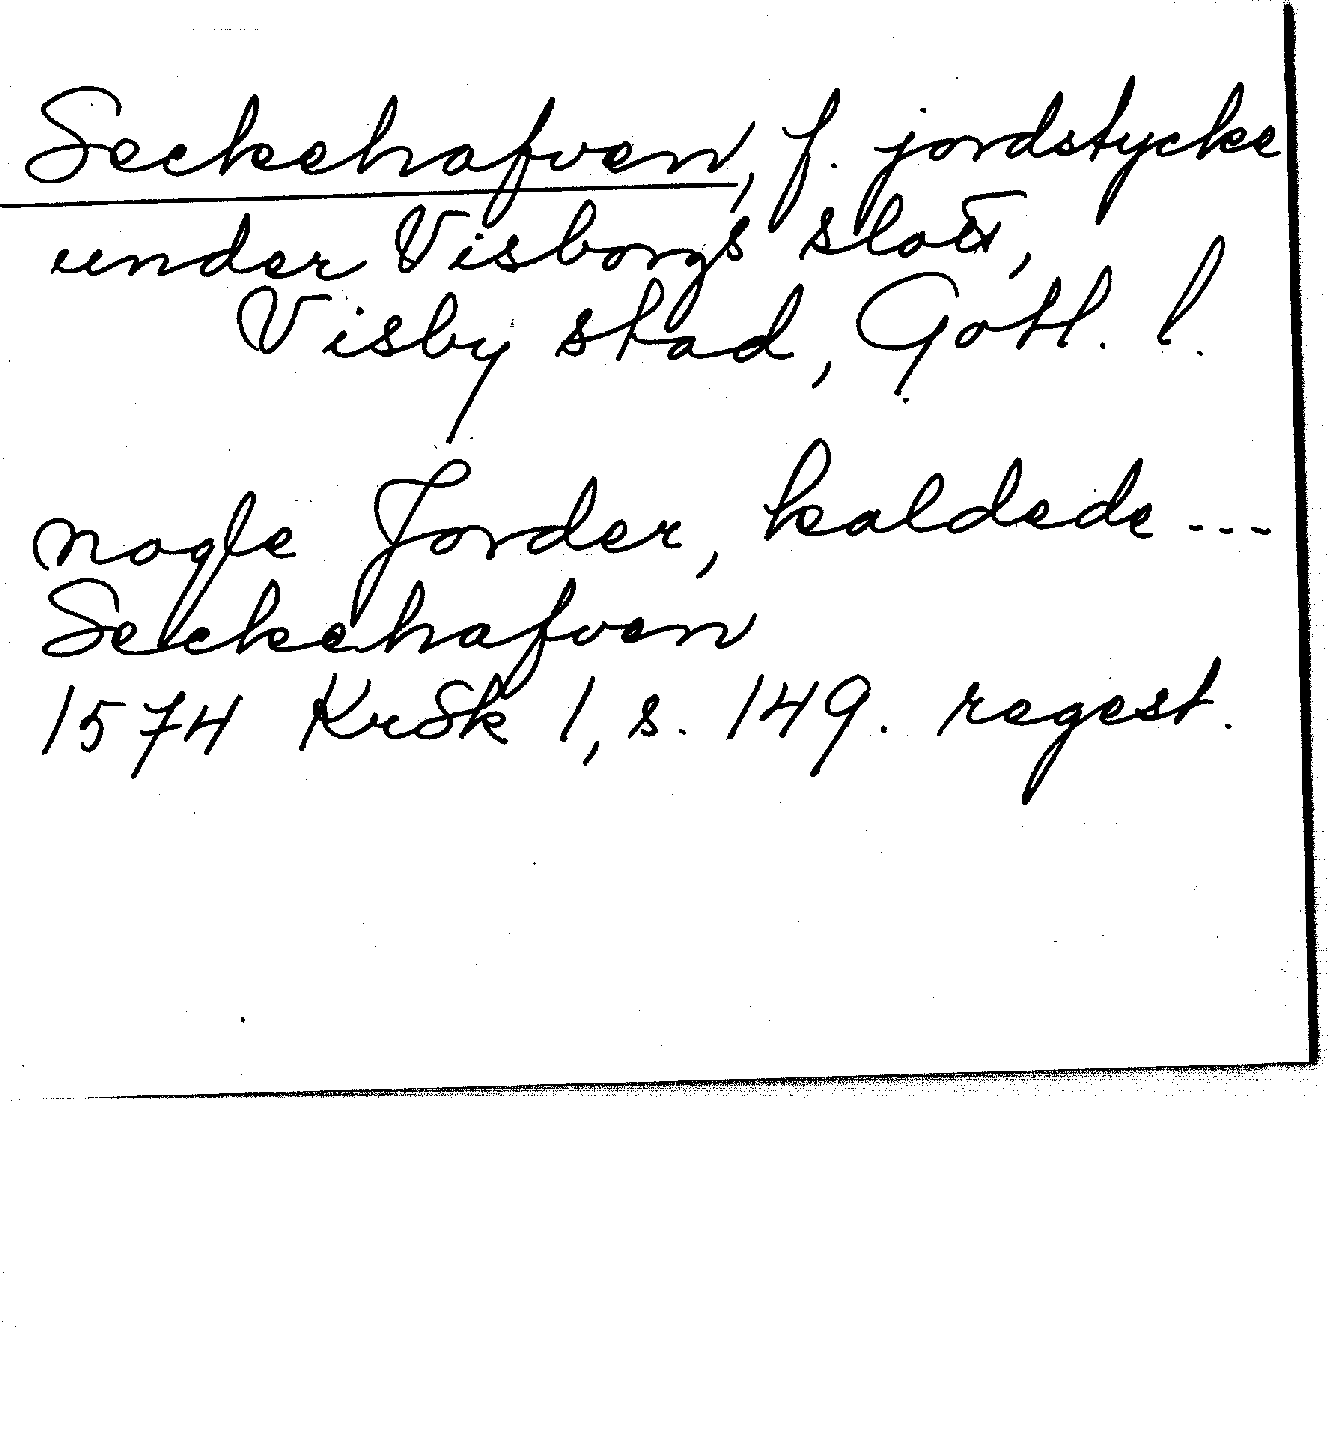 Seckehafven, f. jordstycke
under Visborgs slott,
Visby stad, Gotl. l.
nogle Jorder, kaldede ---
Seckehafven
1574 KrSk 1, s. 149. regest.